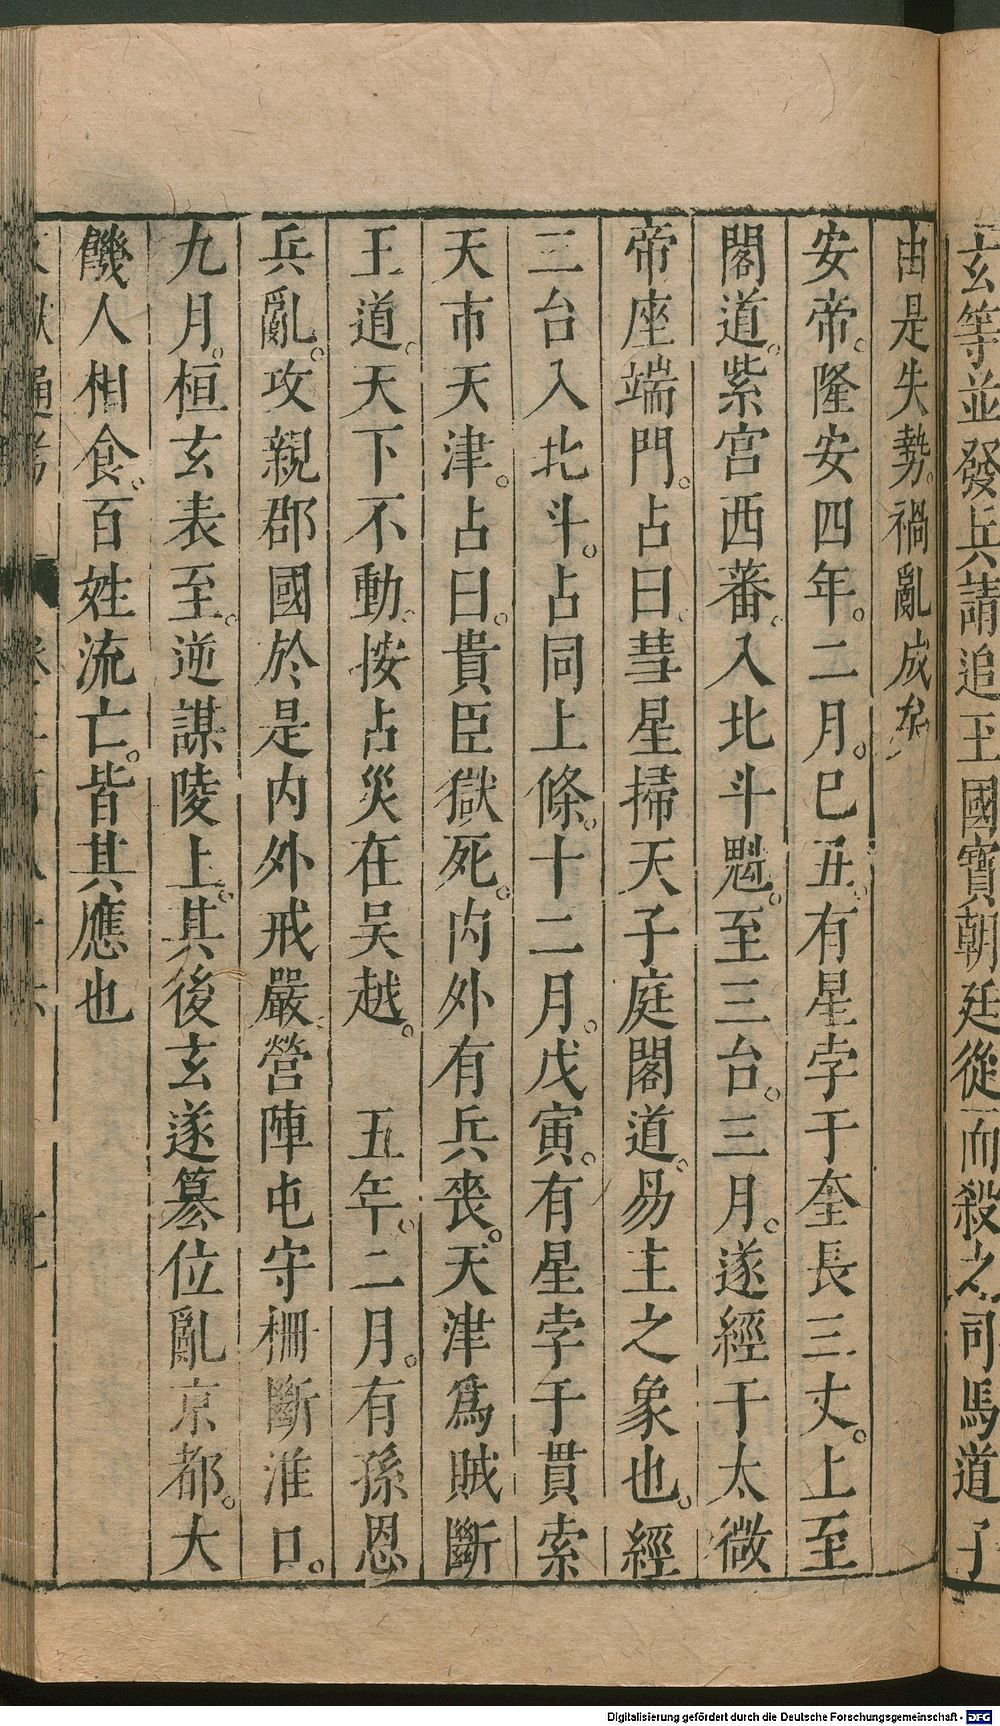 玄等並發兵請追王國寶朝廷從而殺之司馬道子
由是失勢禍亂成矣
安帝隆安四年二月巳丑有星孛于奎長三丈上至
閣道紫宮西蕃入北斗魁至三台三月遂經于太微
帝座端門占曰彗星掃天子庭閣道易主之象也經
三台入北斗占同上條十二月戊寅有星孛于貫索
天市天津占曰貴臣獄死內外有兵喪天津爲賊斷
王道天下不動按占災在吳越　五年二月有孫恩
兵亂攻親郡國於是內外戒嚴營陣屯守柵斷淮口
九月桓玄表至逆謀陵上其後玄遂篡位亂京都大
饑人相食百姓流亡皆其應也
Digitalisierung gefördert durch die Deutsche Forschungsgemeinschaft - DFG